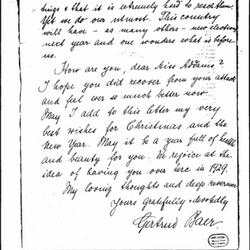 & that it is extremely hard to reach them.
Yet we do our utmost. This country
will have - as many others - new elections
next year and one wonders what is before
us.
How are you, dear Miss Addams?
I hope you did recover from your attack
and feel ever so much better now.
May I add to this letter my very
best wishes for Christmas and the
New Year. May it be a year full of health
and beauty for you. We rejoice at the
idea of having you over here in 1929.
My loving thoughts and deep reverence
Yours gratefully & devotedly
Gertrud Baer.